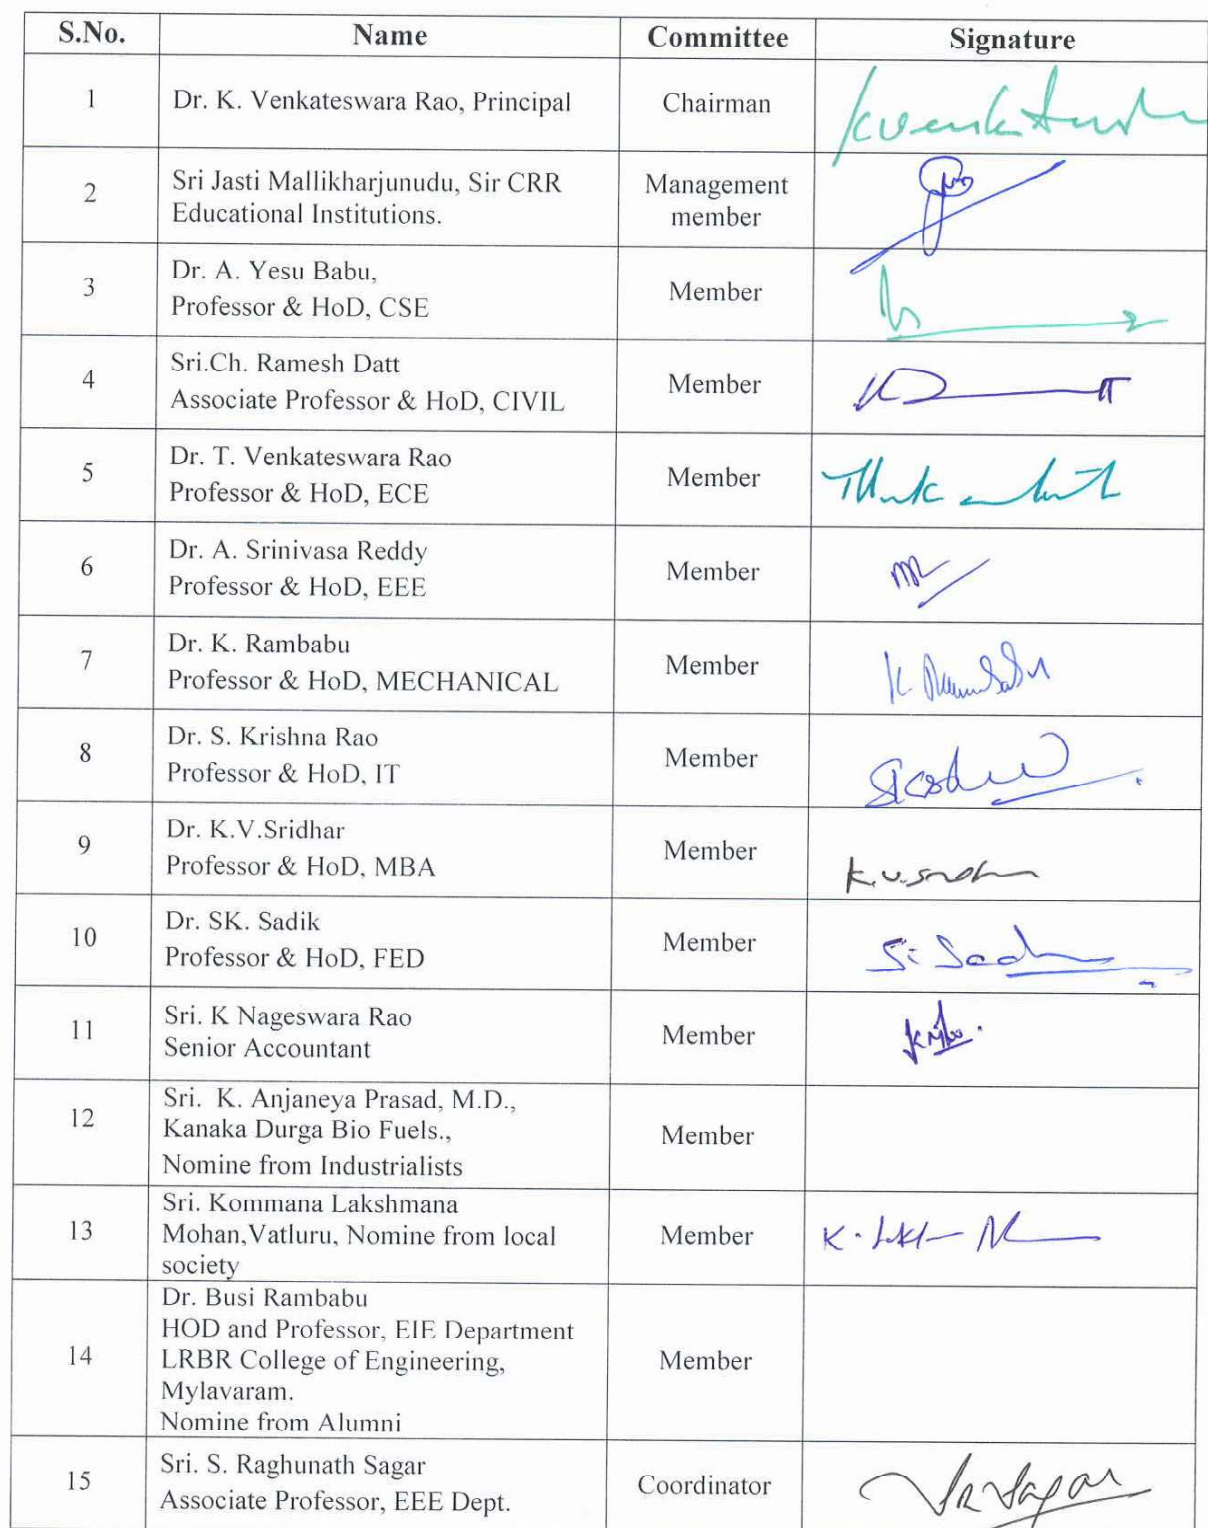 S.No. Name Committee Signature
1 Dr. K. Venkateswara Rao, Principal Chairman
2 Sri Jasti Mallikharjunudu, Sir CRR
Educational Institutions. Management
member
3 Dr. A. Yesu Babu,
Professor & HoD, CSE Member
4 Sri.Ch. Ramesh Datt
Associate Professor & HoD, CIVIL Member
5 Dr. T. Venkateswara Rao
Professor & HoD, ECE Member
6 Dr. A. Srinivasa Reddy
Professor & HoD, EEE Member
7 Dr. K. Rambabu
Professor & HoD, MECHANICAL Member
8 Dr. S. Krishna Rao
Professor & HoD, IT Member
9 Dr. K.V.Sridhar
Professor & HoD, MBA Member
10 Dr. SK. Sadik
Professor & HoD, FED Member
11 Sri. K Nageswara Rao
Senior Accountant Member
12 Sri. K. Anjaneya Prasad, M.D.,
Kanaka Durga Bio Fuels.,
Nomine from Industrialists Member
13 Sri. Kommana Lakshmana
Mohan,Vatluru, Nomine from local
society Member
14 Dr. Busi Rambabu
HOD and Professor, EIE Department
LRBR College of Engineering,
Mylavaram.
Nomine from Alumni Member
15 Sri. S. Raghunath Sagar
Associate Professor, EEE Dept. Coordinator